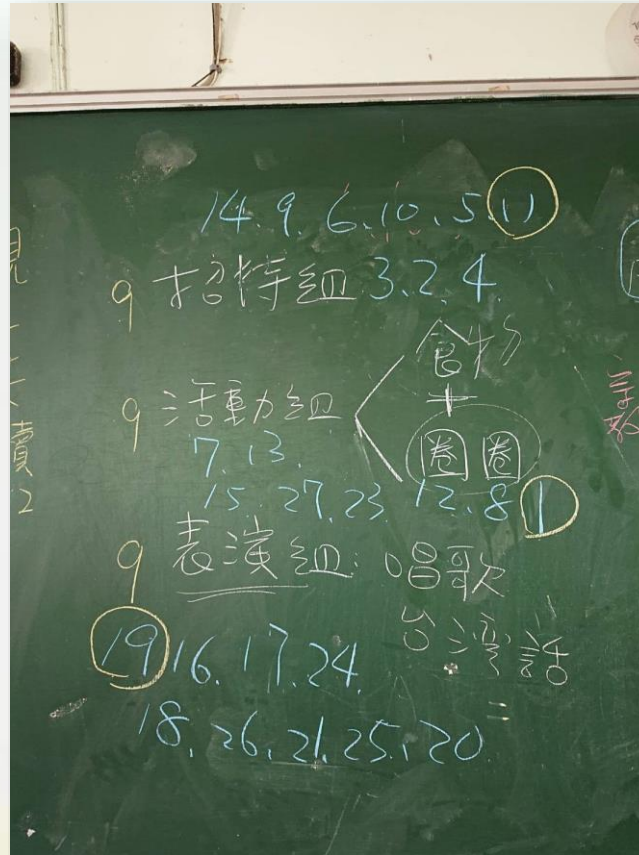 14.9.6.10.5.11
9 招待組 3.2.4.
食物
+
9 活動組
圈圈
7.13.
15.27.23 12.8 1
9 表演組:唱歌
台灣話
19 16.17.24.
18.26.21.25.20
賣2